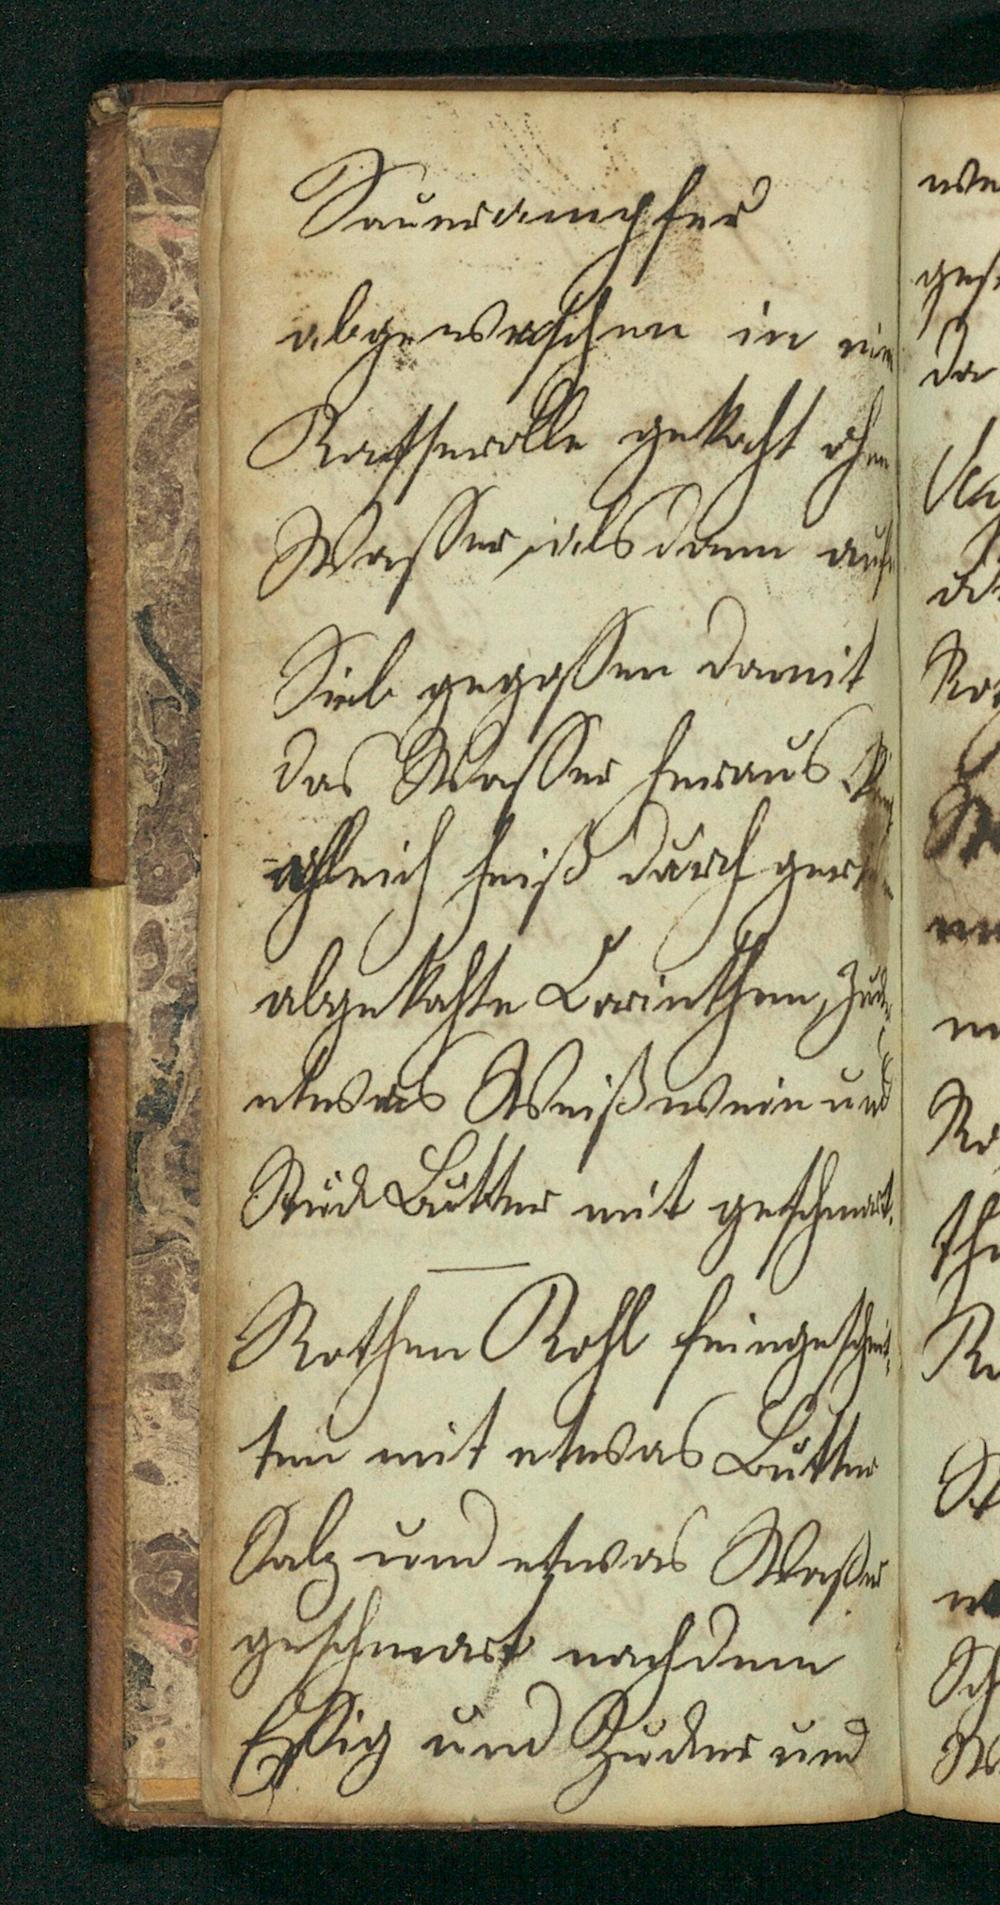 Sauerampfer
abgewaschen in ein
Kasserolle gekocht ohne
Wasser, alsdann aufs
Sieb gegossen damit
das Wasser heraus
gleich heiß durch
abgekochte Corinthen,
etwas Weißwein und
Stück Butter mit geschmort.
Rothen Kohl feingeschnit¬
ten mit etwas Butter
Salz und etwas Waßer
geschmort nachdem
Essig und Zucker und